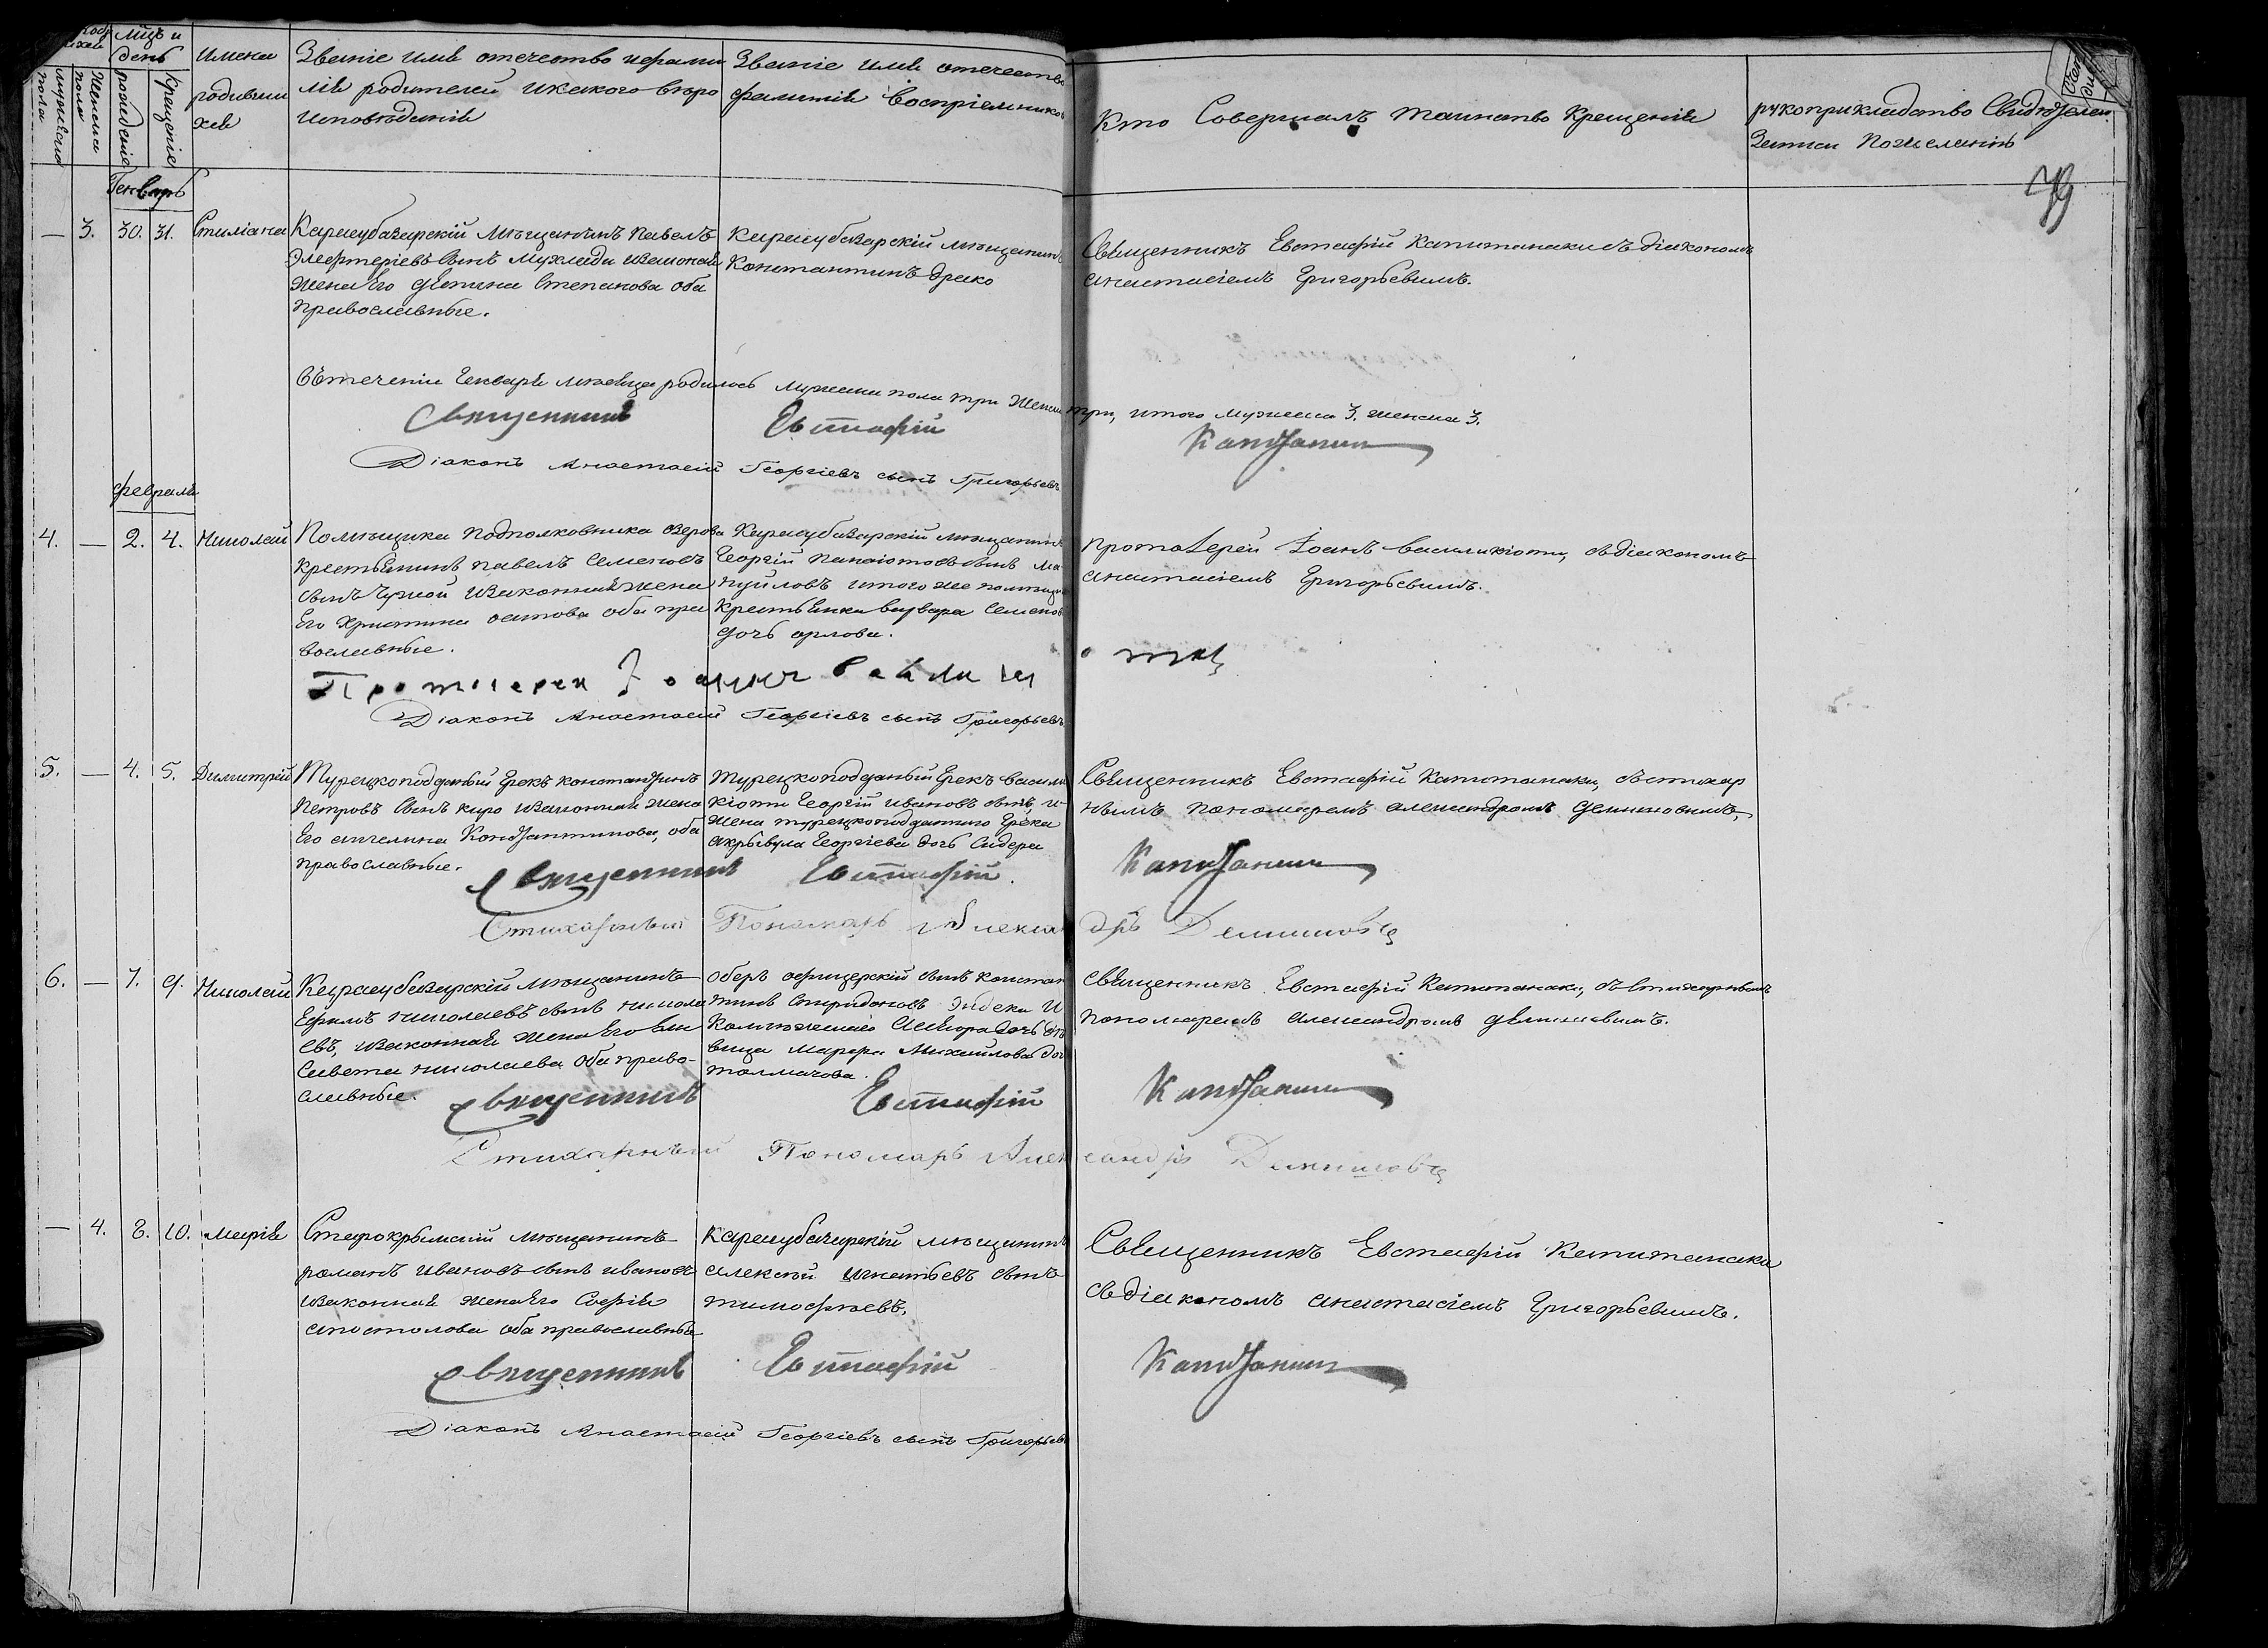 Мцъ и
день
Имена
родивши
хся
Званіе имя отечество ифами
лія родителей икакого вѣро
исповѣданія
Званіе имя отечество
фамилія воспріемниковъ
Кто Совершалъ таинство крещенія
рукоприкладство Свидѣтелей
Записи пожеланію
мужеска
пола
Женска
пола
рожденіе
крещеніе
79
Генварь
— 3. 30. 31. Стиліана
Карасубазарскій мѣщанинъ павелъ
Элефтеріевъ сынъ законная
жена Его Степанова оба
православные.
Карасубазарскій мѣщанинъ
Константинъ Драко
Священникъ Евстафій Капитанаки съ діакономъ
анастасіемъ Григорьевымъ.
Втеченіи Генваря мѣсяца родилось мужеска пола три Женска три, итого мужеска 3. женска 3.
Священникъ Евстафій Капитанаки
Діаконъ Анастасій Георгіевъ сынъ Григорьевъ
февраля
4. — 2. 4. Николай
Помѣщика подполковника Озерова
крестьянинъ павелъ Семеновъ
сынъ законная жена
Его Христина осипова оба пра
вославные.
Карасубазарскій мѣщанинъ
Георгій Панаіотовъ сынъ Ма
нуйловъ итого же помѣщика
крестьянка варвара Семенова
дочь орлова.
протоіерей Іоанъ василикіоти, съ діакономъ
анастасіемъ Григорьевымъ.
Протоіерей Іоаннъ Василикіоти
Діаконъ Анастасій Георгіевъ сынъ Григорьевъ
5. — 4. 5. Димитрій
Турецкоподданый Грекъ константинъ
Петровъ сынъ киро законная жена
Его ангелина Константинова, оба
православные.
турецкоподданый Грекъ васили
кіоти Георгій ивановъ сынъ, и
жена турецкоподданого Грека
Георгіева дочь Сидери
Священникъ Евстафій Капитанаки, съ стихар
нымъ пономаремъ александромъ Демишовымъ,
Священникъ Евстафій Капитанаки
Стихарный Пономарь Александръ Демишовъ
6. — 7. 9. Николай
Карасубазарскій мѣщанинъ
Ефимъ николаевъ сынъ никола
евъ, законная жена Его Ели
савета николаева оба право-
славные.
оберъ офицерскій сынъ констан
тинъ спиридоновъ И
дочь дѣ
вица марфа Михайлова дочь
толмачова.
священникъ Евстафій Капитанаки, съ стихарнымъ
пономаремъ александромъ Демишовымъ.
Священникъ Евстафій Капитанаки
Стихарный Пономарь Александръ Демишовъ
— 4. 8. 10. марія
Старокрымскій мѣщанинъ
романъ ивановъ сынъ ивановъ
законная жена Его Софія
апостолова оба православные
Карасубазарскій мѣщанинъ
алексѣй игнатьевъ сынъ
тимофѣевъ,
Священникъ Евстафій Капитанаки
съ діакономъ анастасіемъ Григорьевымъ.
Священникъ Евстафій Капитанаки
Діаконъ Анастасій Георгіевъ сынъ Григорьевъ